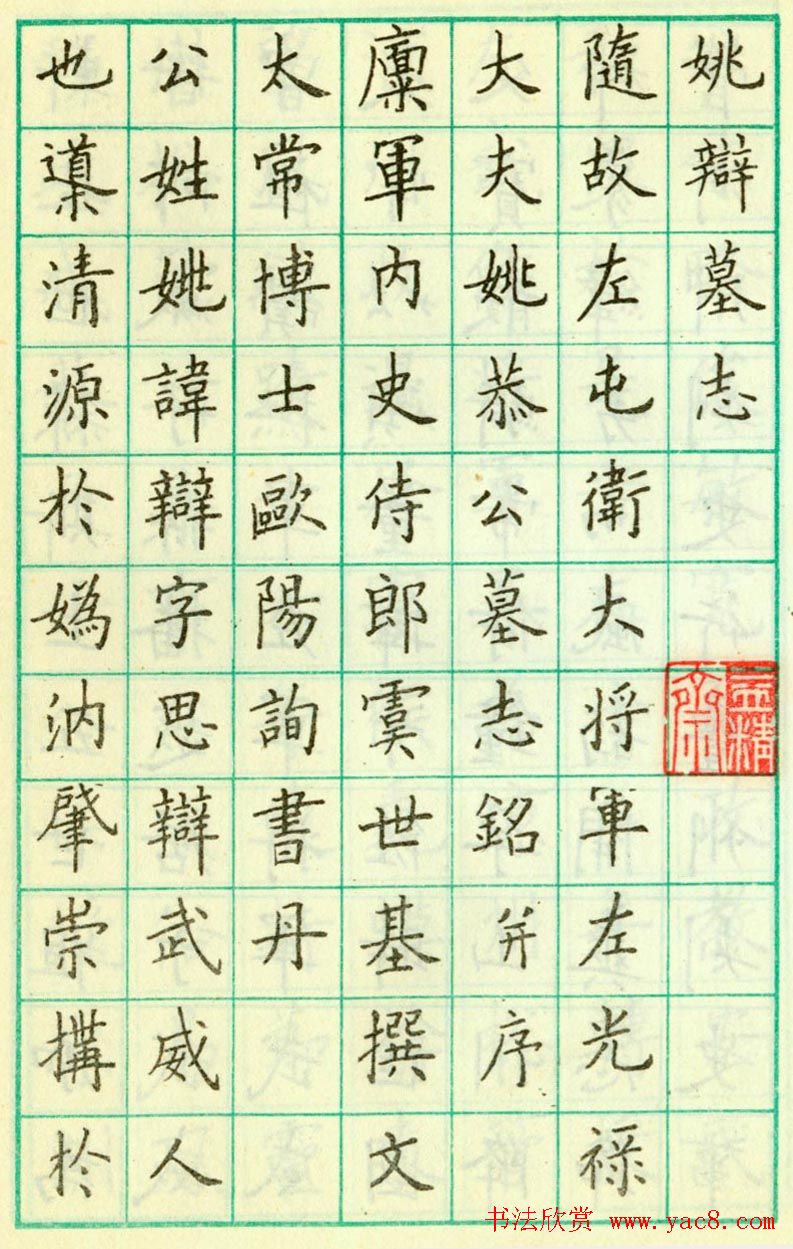 姚辯墓志
隨故左屯衛大将軍左光禄
大夫姚恭公墓志銘并序
廩軍内史侍郎虞世基撰文
太常博士歐陽詢書丹
公姓姚諱辯字思辯武威人
也導清源於嬀汭肇崇搆於
书法欣赏 www.yac8.com